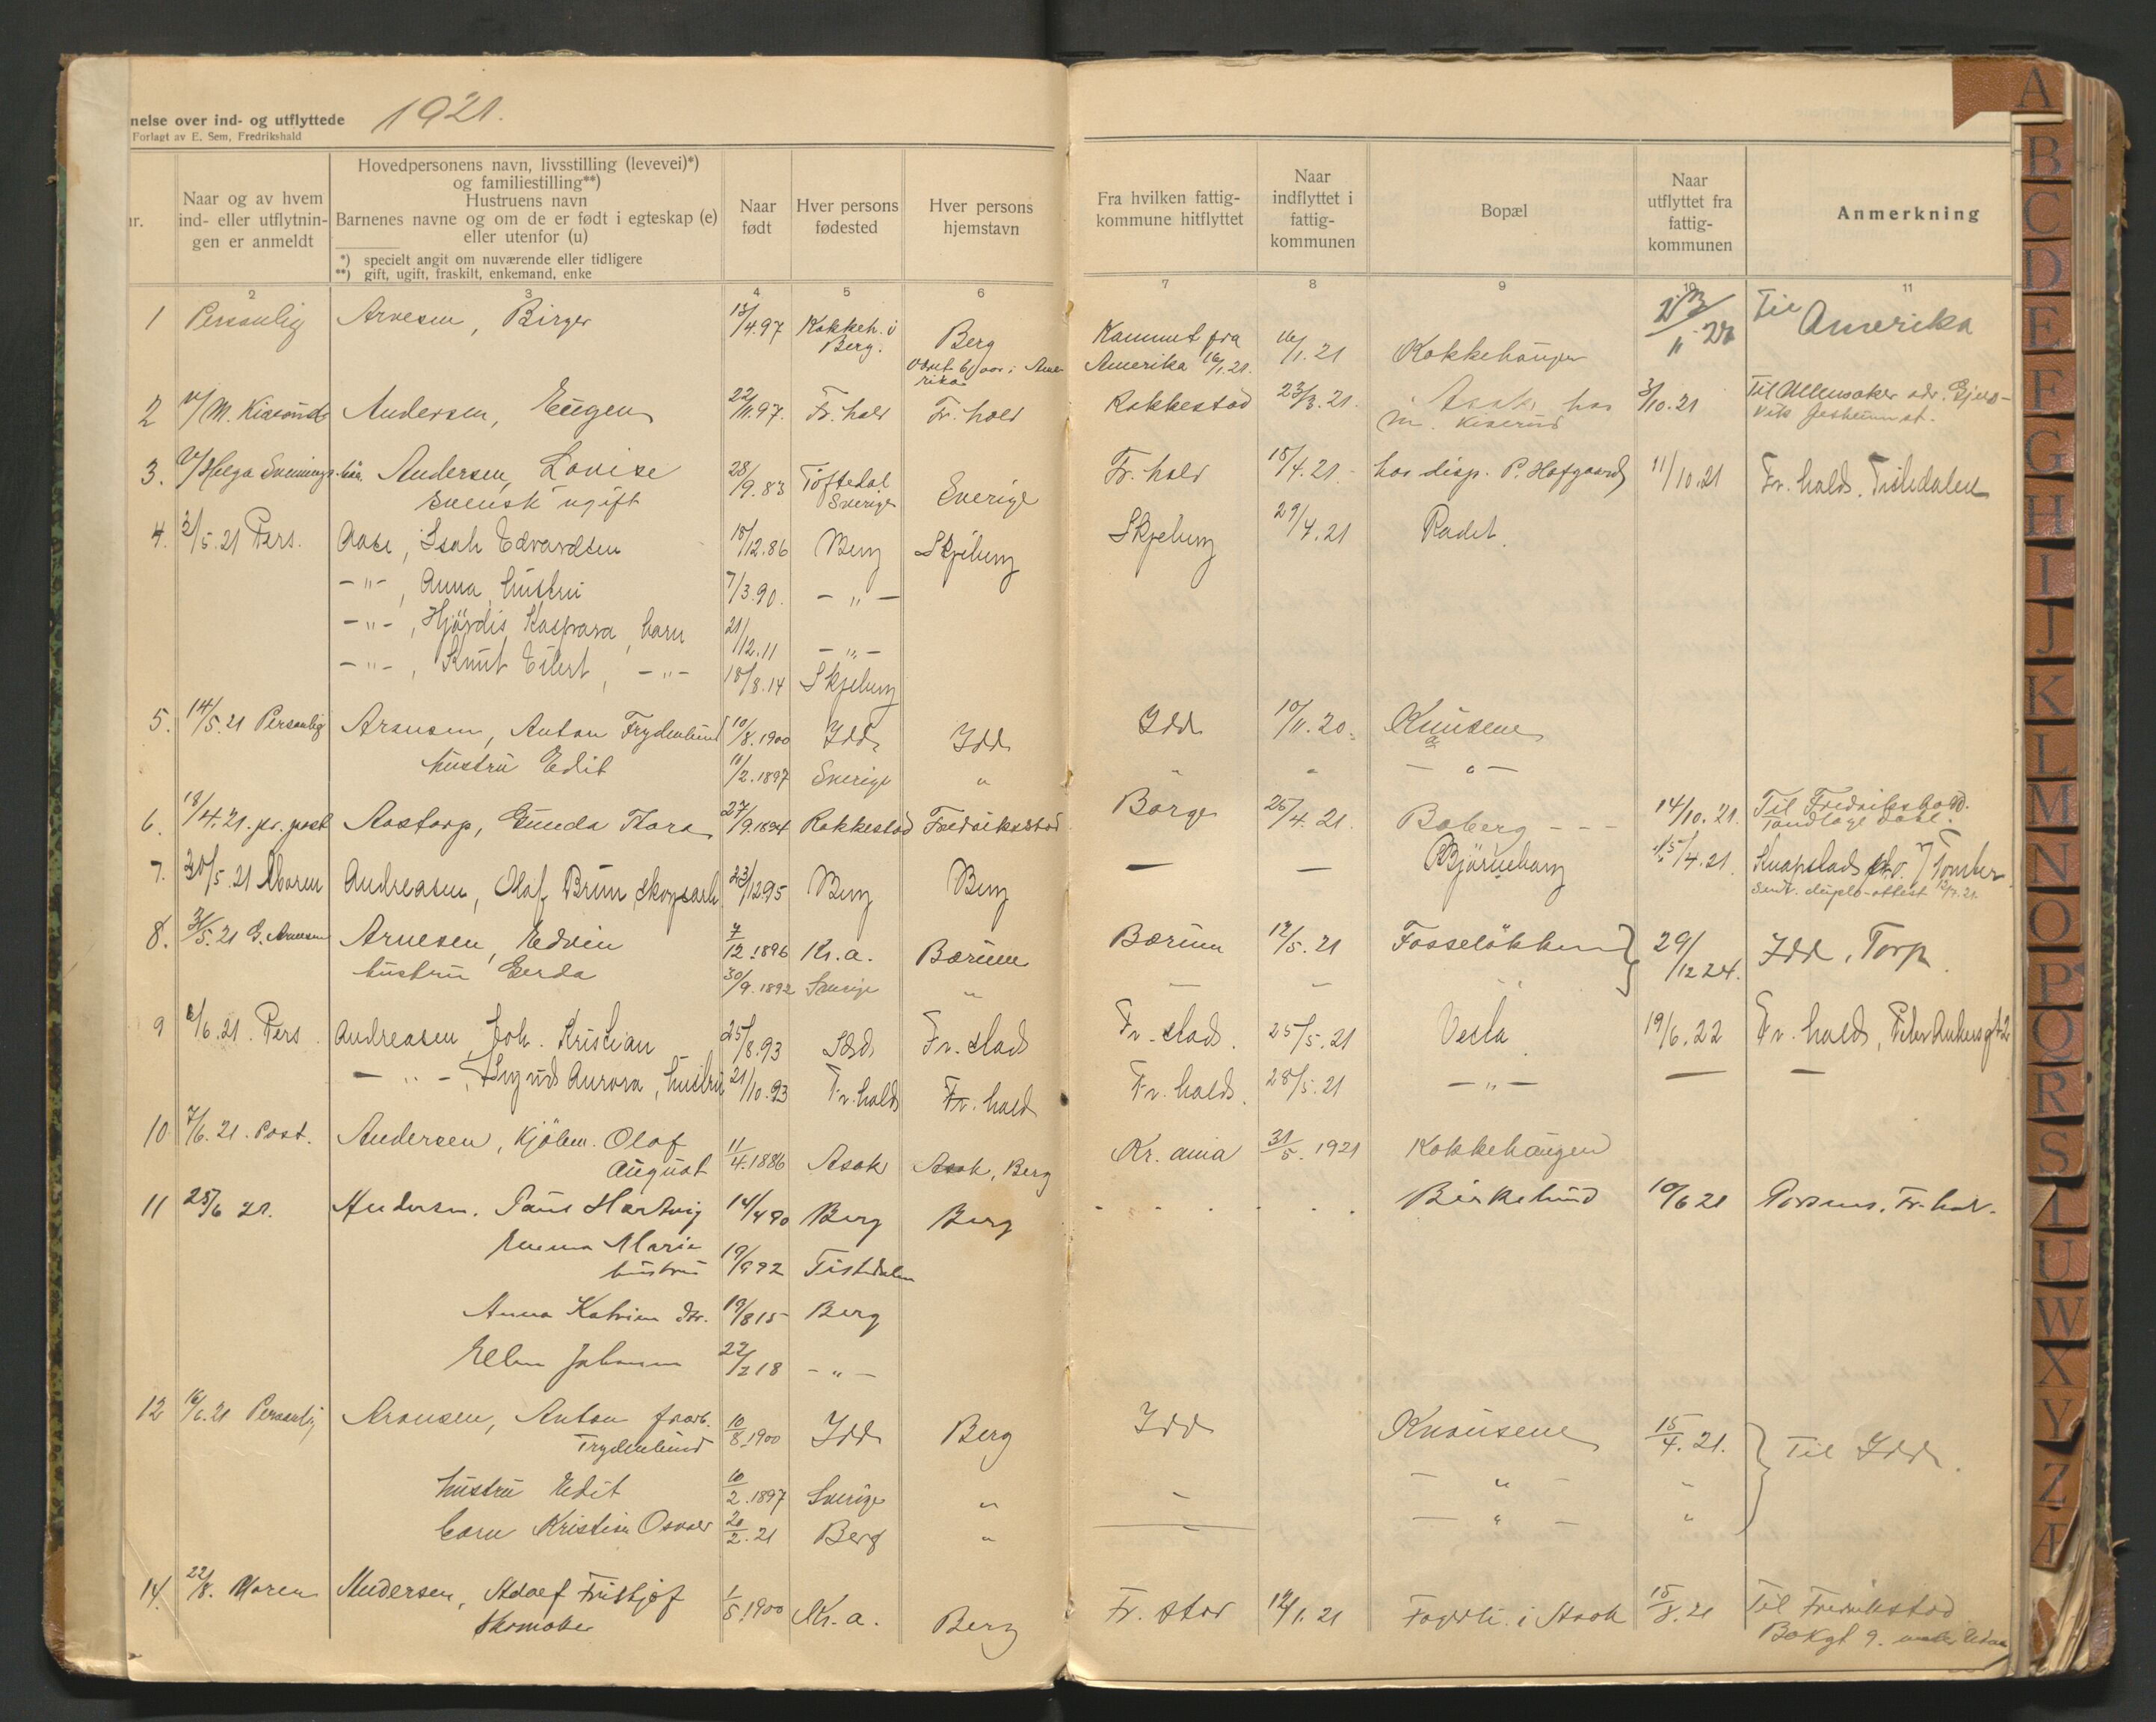 nelse over ind- og utflyttede 1921.
Forlagt av E. Sem, Fredrikshald
nr.
Naar og av hvem
ind- eller utflytnin-
gen er anmeldt
Hovedpersonens navn, livsstilling (levevei)*)
og familiestilling**)
Hustruens navn
Barnenes navne og om de er født i egteskap (e)
eller utenfor (u)
*) specielt angit om nuværende eller tidligere
**) gift, ugift, fraskilt, enkemand, enke
Naar
født
Hver persons
fødested
Hver persons
hjemstavn
Fra hvilken fattig-
kommune hitflyttet
Naar
indflyttet i
fattig-
kommunen
Bopæl
Naar
utflyttet fra
fattig-
kommunen
Anmerkning
2 3 4 5 6 7 8 9 10 11
1 Personlig Arnesen, Birger 13/4.97 Kokkeh. i Berg Kommet fra 16/1.21 Kokkehaugen Til Amerika
Berg. været 6 aar i Ame- Amerika 16/1.21.
rika
2 Andersen, Eugen 22/11.97. Fr.hald Fr.hald Rakkestad 23/3.21. Asak hos 3/10.21 Til Ullensaker adr. Gjers-
m. Kiserud vik Jesheim st.
3. Helga Svennings Andersen, Lovise 28/9.83 Töftedal Sverige Fr. hald 15/4.21 hos disp. P. Hofgaard 11/10.21 Fr. hald. Tistedalen
Svensk ugift Sverige
4. 2/5.21 Pers. Aase, Isak Edvardsen 15/12.86 Berg Skjeberg Skjeberg 29/4.21 Rødet.
-"-, Anna hustru 7/3.90. -"-
-"-, Hjördis Kaspara, barn 21/12.11 -"-
-"-, Knut Eilert, -"- 18/8.14 Skjeberg
5. 14/5.21 Personlig Aronsen, Anton Frydenlund 10/8.1900 Idd Idd Idd 10/11.20. Knausene
hustru Edit 10/2.1897 Sverige " " " -"-
6. 18/4.21. pr. post Aastorp, Gunda Thora 27/9.1894 Rakkestad Fredrikstad Borge 25/4.21. Boberg --- 14/10.21. Til Fredrikshald.
Tandlæge Dahl.
7. 30/5.21 Maren Andreasen, Olaf Brun skogsarb 23/12.95 Berg Berg — — Björneberg 15/4.21. Knapstad
Sendt duplo-attest
8. 31/5.21 G. Arnesen Arnesen, Edvin 7/12.1896 Kr.a. Bærum Bærum 12/5.21 Fosseløkken 29/12 24. Idd, Torp.
hustru Gerda 30/9.1892 Sverige "
9 6/6.21. Pers. Andreasen, Joh. Kristian 25/8.93 Idd Fr. stad Fr. stad. 25/5.21 Vesta 19/6.22 Fr. hald, Peder Ankersgt 2
-"-, Sigrid Aurora, hustru 21/10.93 Fr. hald Fr. hald Fr. hald. 28/5.21 -"- — —
10 7/6.21. Post. Andersen, kjölem. Olaf 11/4.1886 Asak Asak, Berg Kr.ania 31/5.1921 Kokkehaugen
August
11 25/6 21. Andersen. Paul Hartvig 14/4 90 Berg Berg Birkelund 10/6 21 Porsnes. Fr. hald.
Emma Marie 19/9 92 Tistedalen
hustru
Anna Katrine dtr. 19/8 15 Berg
Ellen Johanne 22/2 18 -"-
12 16/6.21 Personlig Aronsen, Anton 10/8.1900 Idd Berg Idd Knausene 15/4.21. Til Idd.
Frydenlund
hustru Edit 10/2.1897 Sverige " -"- "
barn Kristian Oskar 20/2.21 Berg " -"- "
14. 22/8. Maren Andersen, Adolf Fritjof 1/5.1900 Kr.a. Berg Fr. stad 12/1.21 Fagerli i Asak 15/8.21 Til Fredrikstad
Skomaker Bokgt 9.
A
B
C
D
E
F
G
H
I
J
K
L
M
N
O
P
Q
R
S
T
U
W
X
Y
Z
Æ